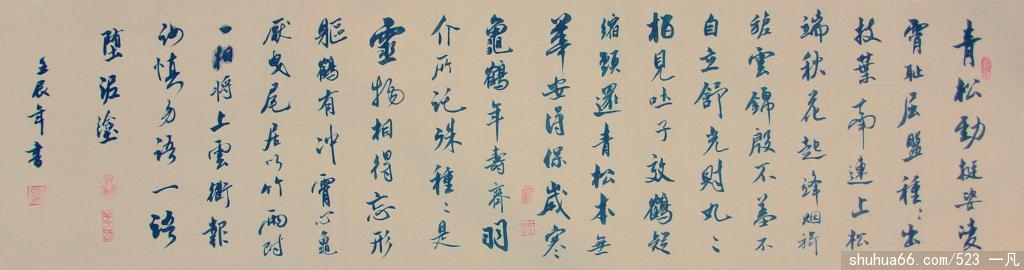 青松勁挺姿凌
霄耻屈盤種〻出
枝葉牽連上松
端秋花起絳烟旖
旎雲錦殷不羞不
自立舒光射丸〻
柏見吐子效鶴疑
縮頸還青松本無
華安得保歲寒
龜鶴年壽齊羽
介所託殊種〻是
靈物相得忘形
軀鶴有沖霄心龜
厭曳尾居以竹兩附
口相將上雲衢報
汝慎勿語一語
墮泥塗
壬辰年書
shuhua66.com/523 一凡